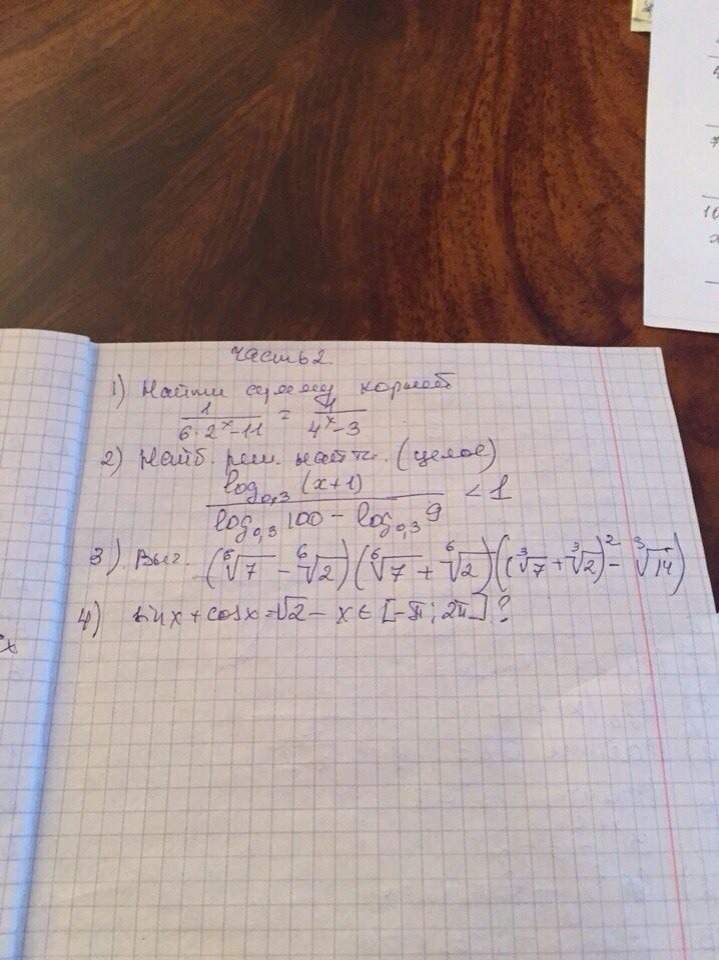 Часть 2.
1) Найти сумму корней
1/(6·2^x-11) = 4/(4^x-3)
2) Наиб. реш. найти. (целое)
log_{0,3}(x+1)/(log_{0,3}100 - log_{0,3}9) < 1
3) Выч. (⁶√7 - ⁶√2)(⁶√7 + ⁶√2)((³√7 + ³√2)² - ³√14)
4) sinx + cosx = √2 - x ∈ [-π; 2π]?